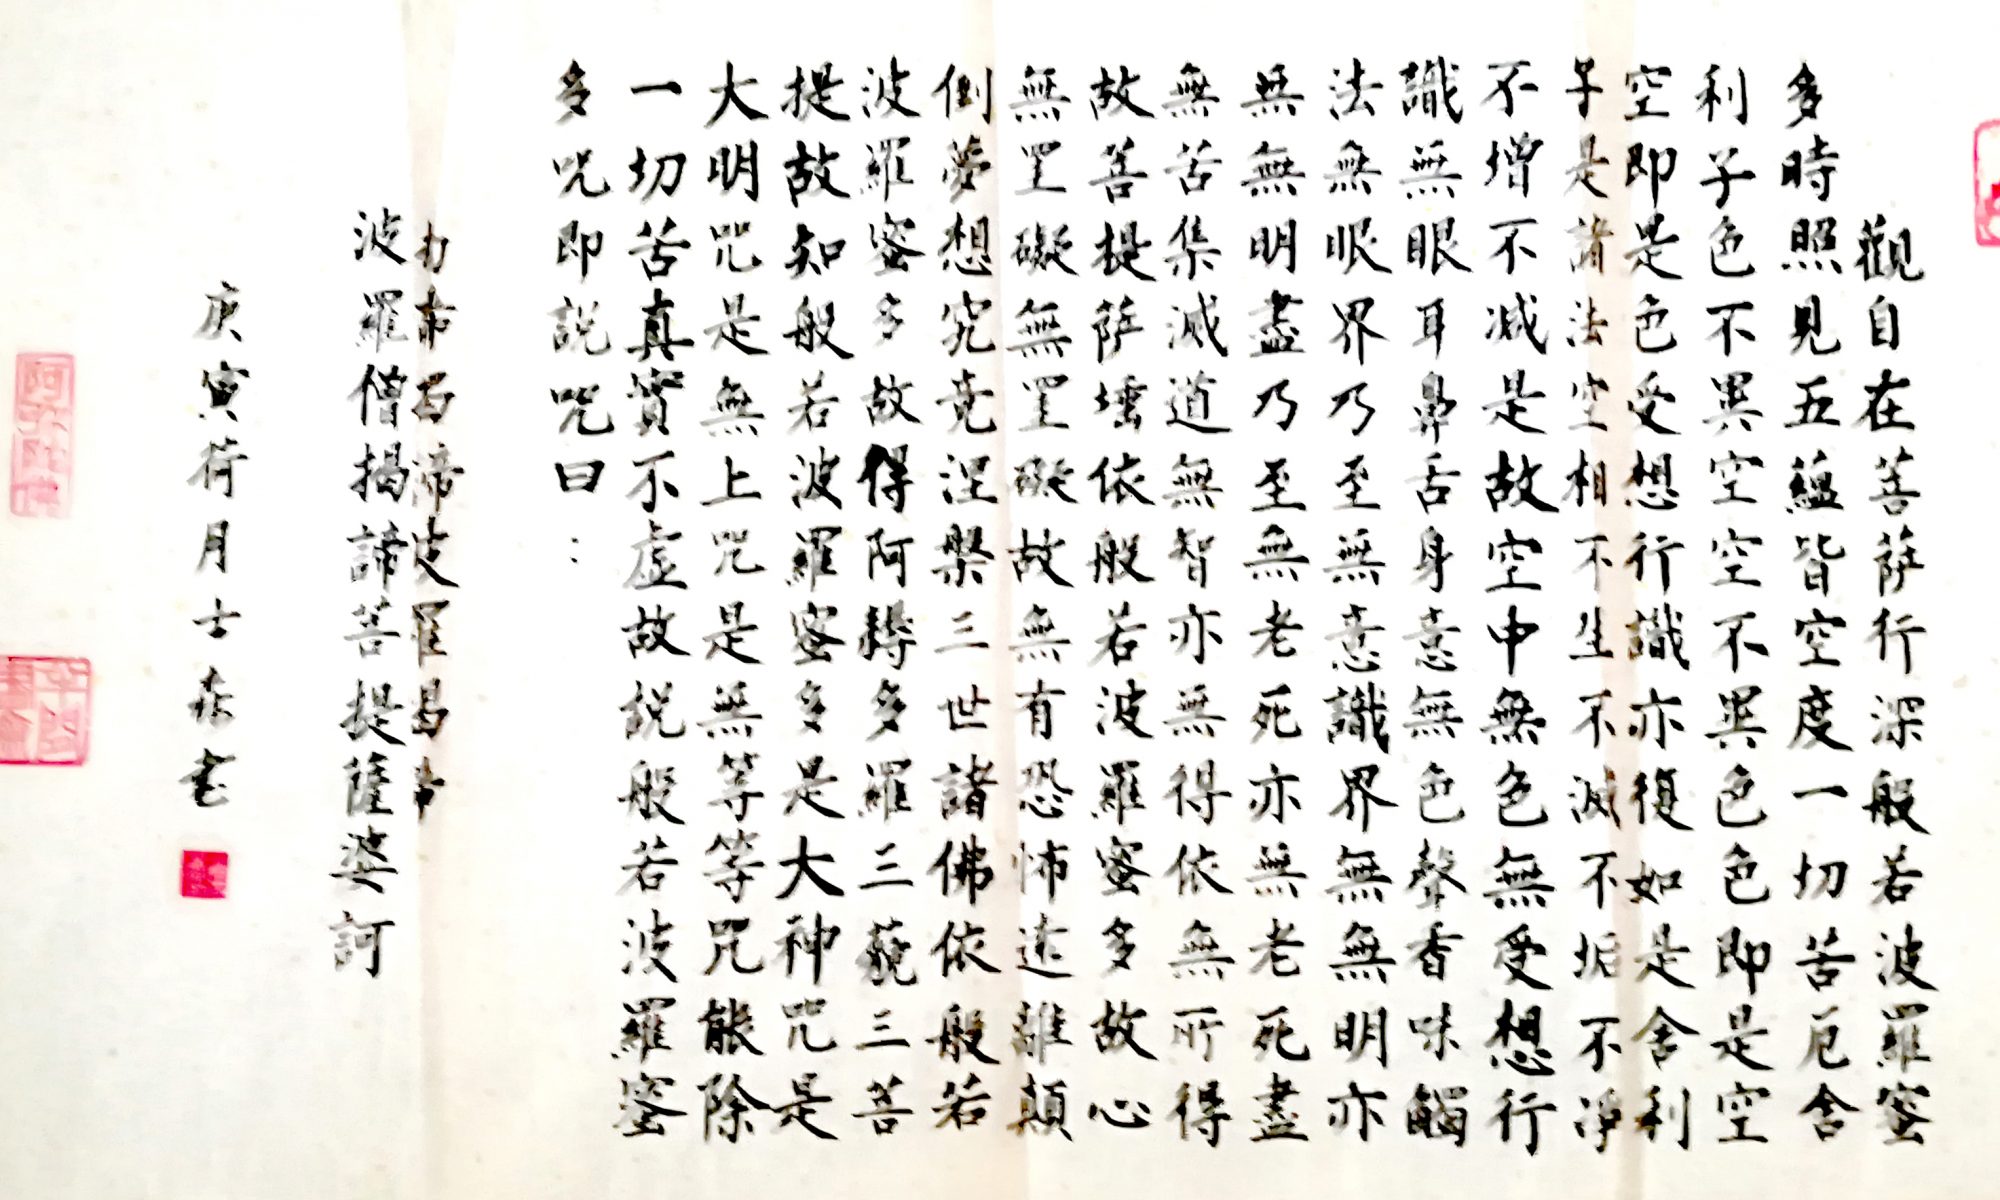 觀自在菩薩行深般若波羅蜜
多時照見五蘊皆空度一切苦厄舍
利子色不異空空不異色色即是空
空即是色受想行識亦復如是舍利
子是諸法空相不生不滅不垢不淨
不增不减是故空中無色無受想行
識無眼耳鼻舌身意無色聲香味觸
法無眼界乃至無意識界無無明亦
無無明盡乃至無老死亦無老死盡
無苦集滅道無智亦無得依無所得
故菩提薩埵依般若波羅蜜多故心
無罣礙無罣礙故無有恐怖遠離顛
倒夢想究竟涅槃三世諸佛依般若
波羅蜜多故得阿耨多羅三藐三菩
提故知般若波羅蜜多是大神咒是
大明咒是無上咒是無等等咒能除
一切苦真實不虛故説般若波羅蜜
多咒即説咒曰：
揭諦揭諦波羅揭諦
波羅僧揭諦菩提薩婆訶
庚寅荷月士森書